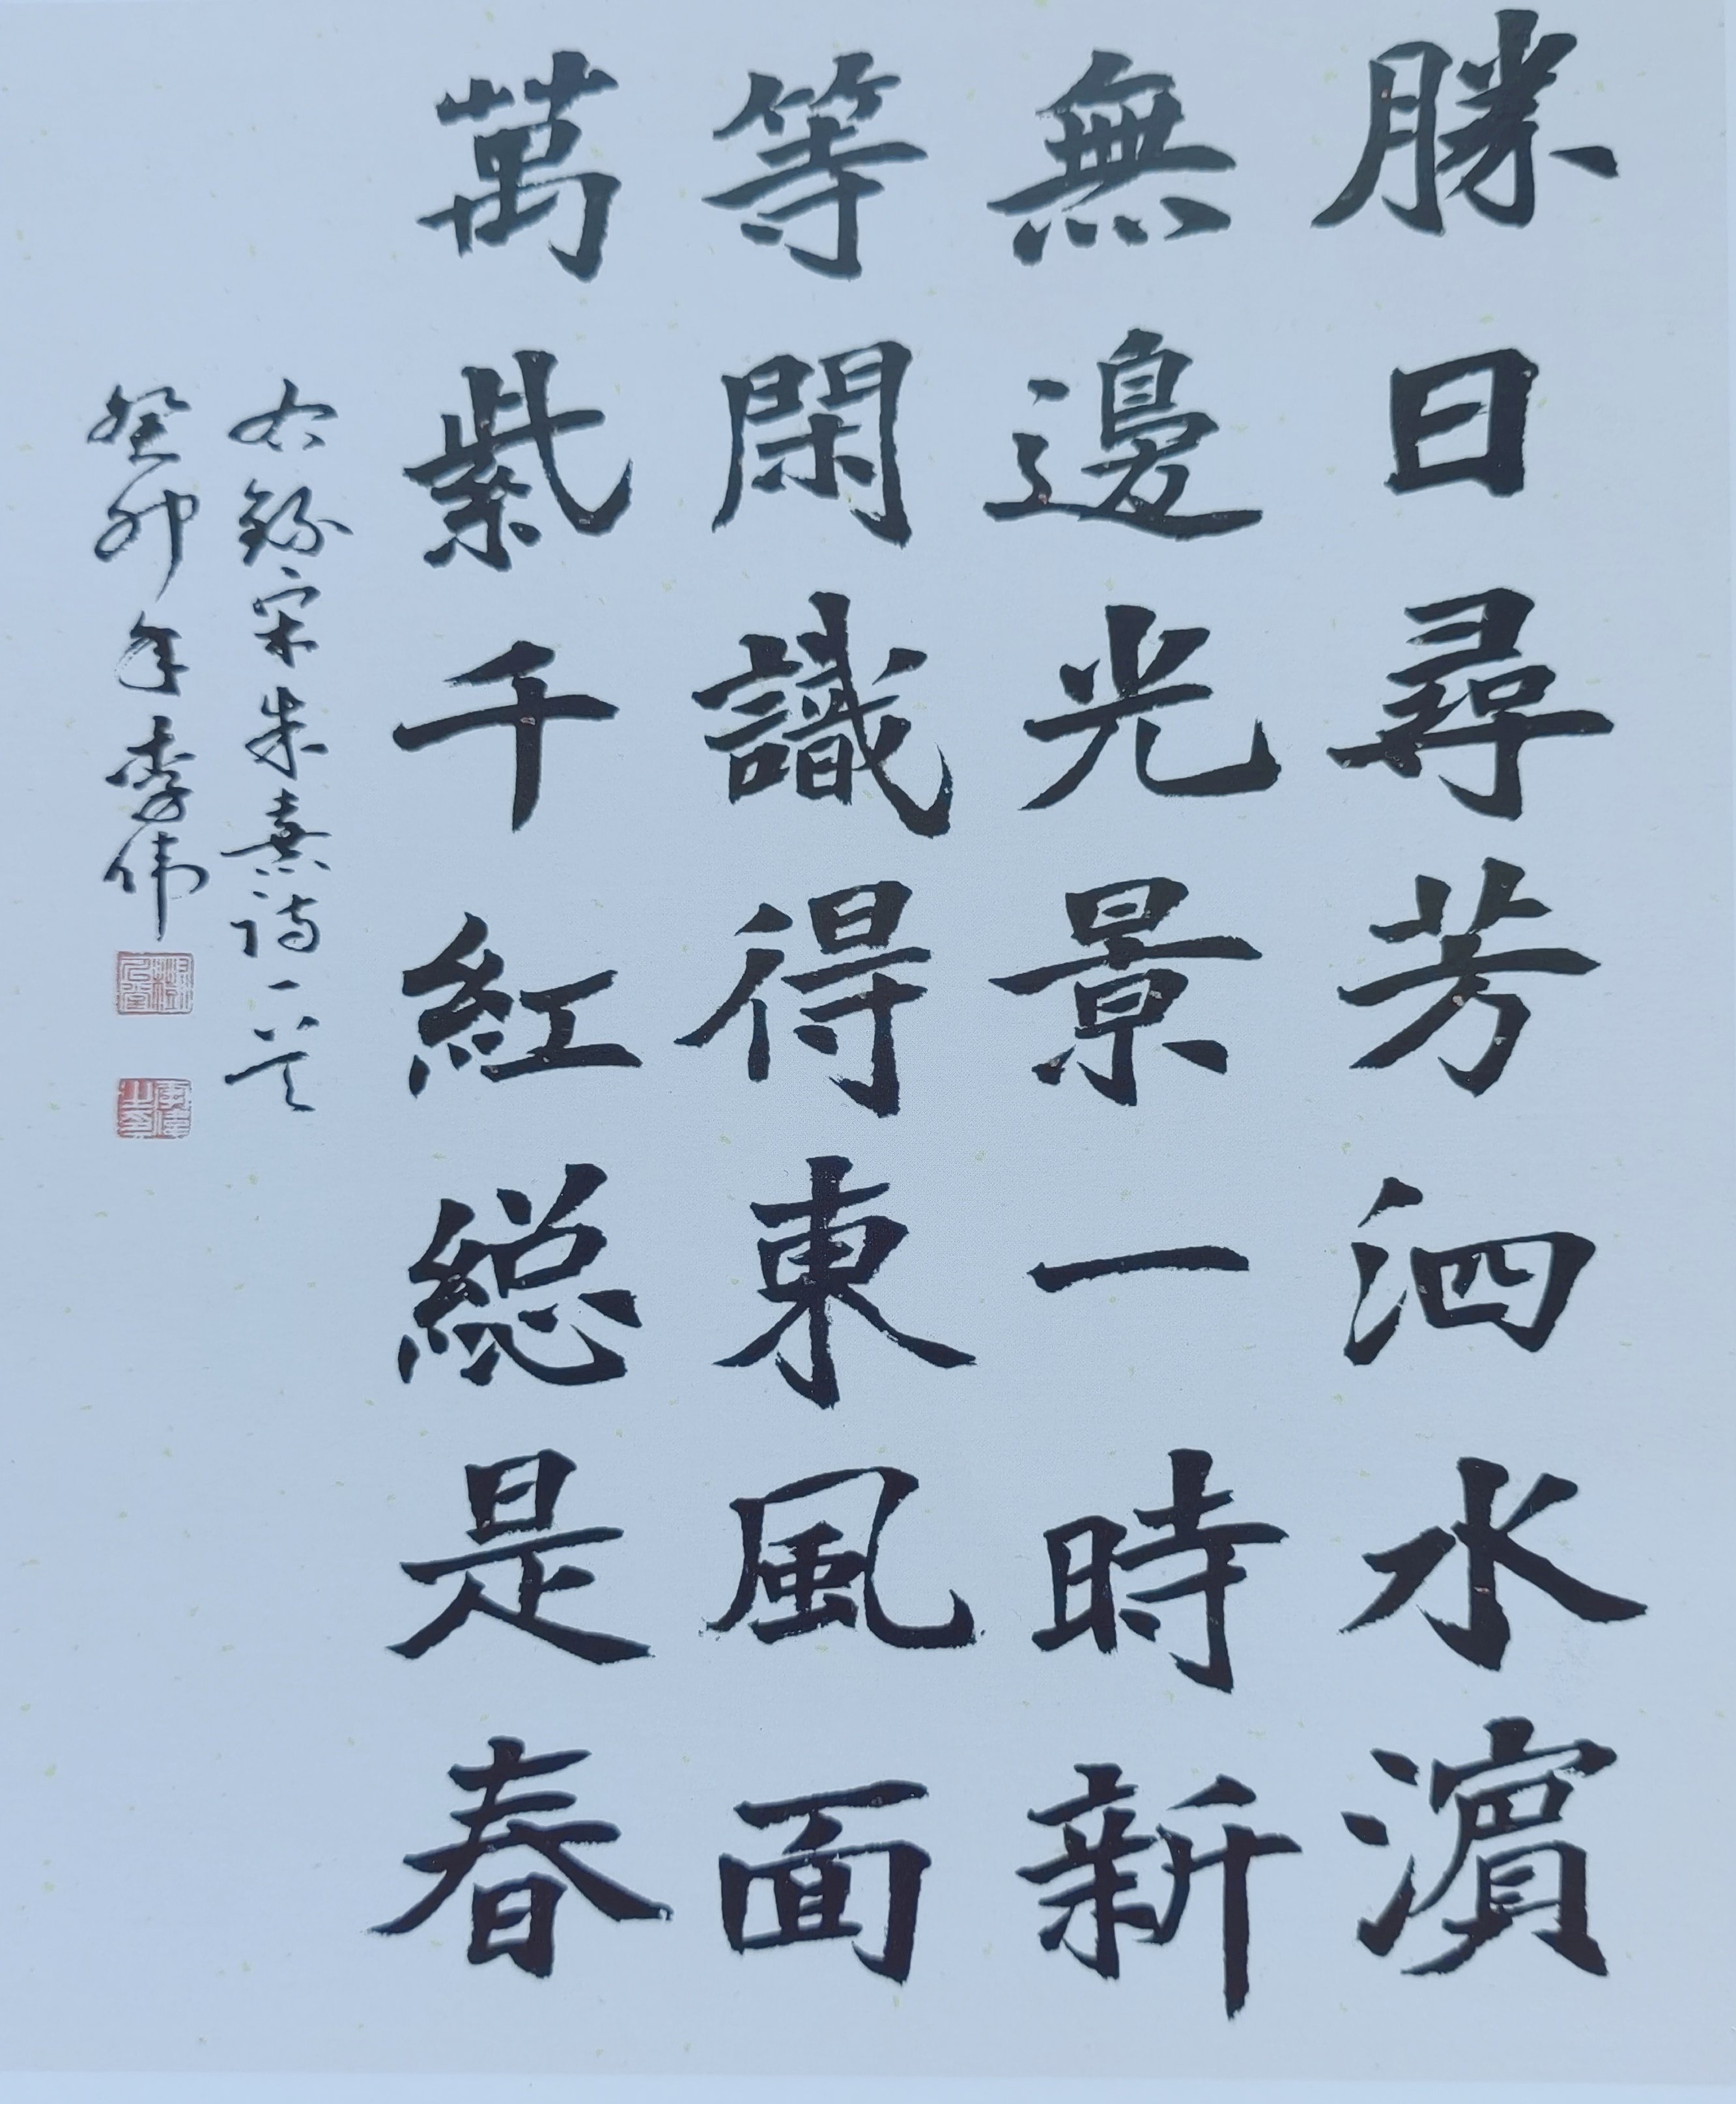 勝日尋芳泗水濵
無邊光景一時新
等閑識得東風面
萬紫千紅総是春
右録宋朱熹詩一首
癸卯年李伟